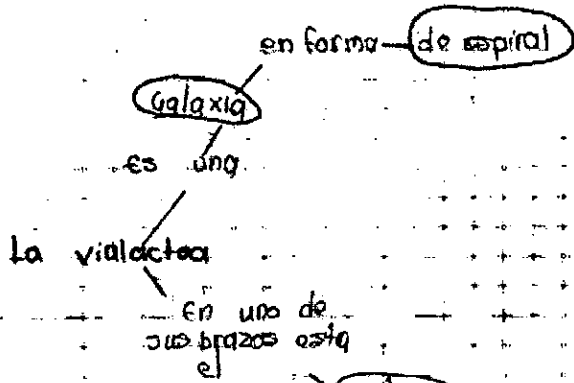 en forma de espiral
Galaxia
es una
La vialactea
En uno de
sus brazos esta
el